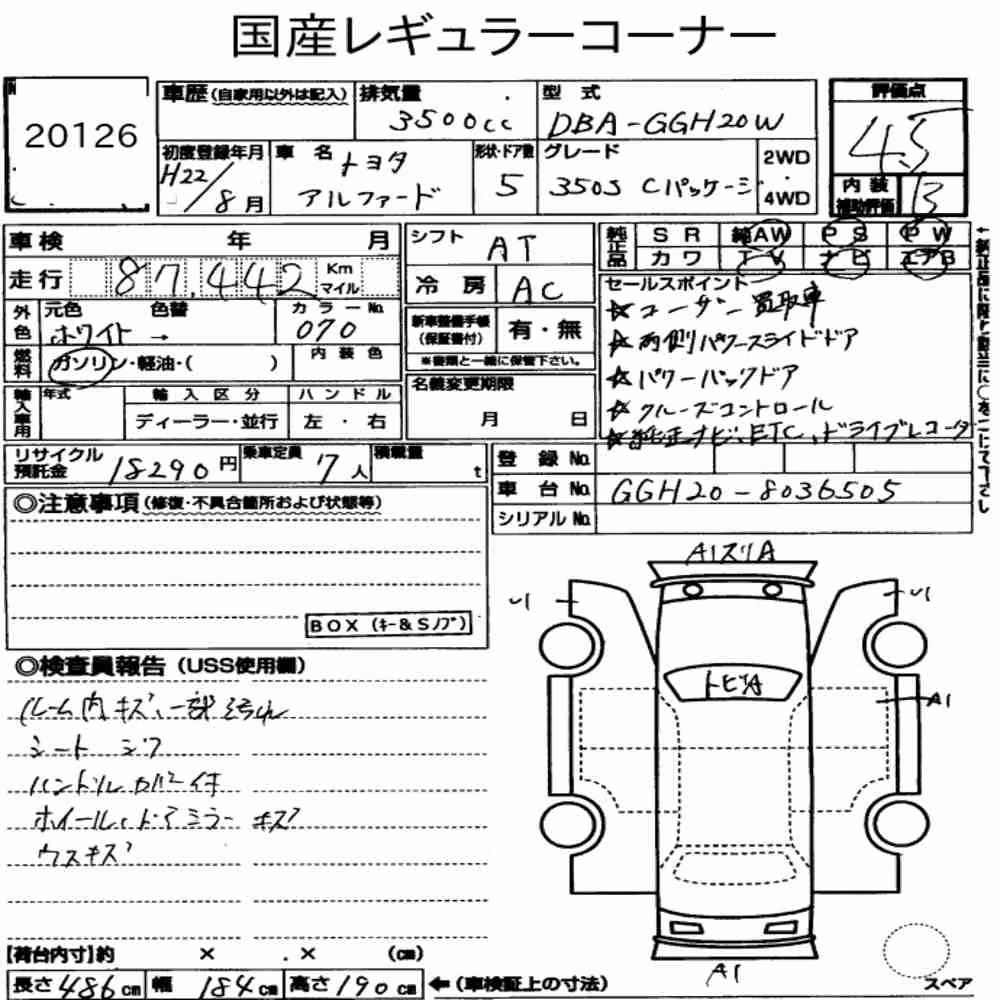 国産レギュラーコーナー
20126
車歴(自家用以外は記入)
排気量 3500cc
型式 DBA-GGH20W
評価点 4.5
初度登録年月 H22/8月
車名 トヨタ アルファード
形状・ドア数 5
グレード 350S Cパッケージ
2WD・4WD
内装補助評価 B
車検 年 月
走行 87,442 Km マイル
シフト AT
冷房 AC
純正品 SR 純AW PS PW
カワ TV ナビ エアB
外色 元色 ホワイト → 色替
カラーNo. 070
燃料 ガソリン・軽油・( )
内装色
新車整備手帳(保証書付) 有・無
※書類と一緒に保管下さい。
名義変更期限 月 日
セールスポイント
☆ユーザー買取車
☆両側パワースライドドア
☆パワーバックドア
☆クルーズコントロール
☆純正ナビ、ETC、ドライブレコーダ
輸入車用 年式
輸入区分 ディーラー・並行
ハンドル 左・右
リサイクル預託金 18290円
乗車定員 7人
積載量 t
登録No.
車台No. GGH20-8036505
シリアルNo.
◎注意事項(修復・不具合箇所および状態等)
BOX(キー&Sノブ)
◎検査員報告(USS使用欄)
ルーム内キズ、一部汚れ
シートシワ
ハンドルカバー付
ホイール、ドアミラーキズ
ウスキズ
A1スリA
U1
U1
トビA
A1
A1
スペア
【荷台内寸】約 × . × (cm)
長さ486cm 幅184cm 高さ190cm ←(車検証上の寸法)